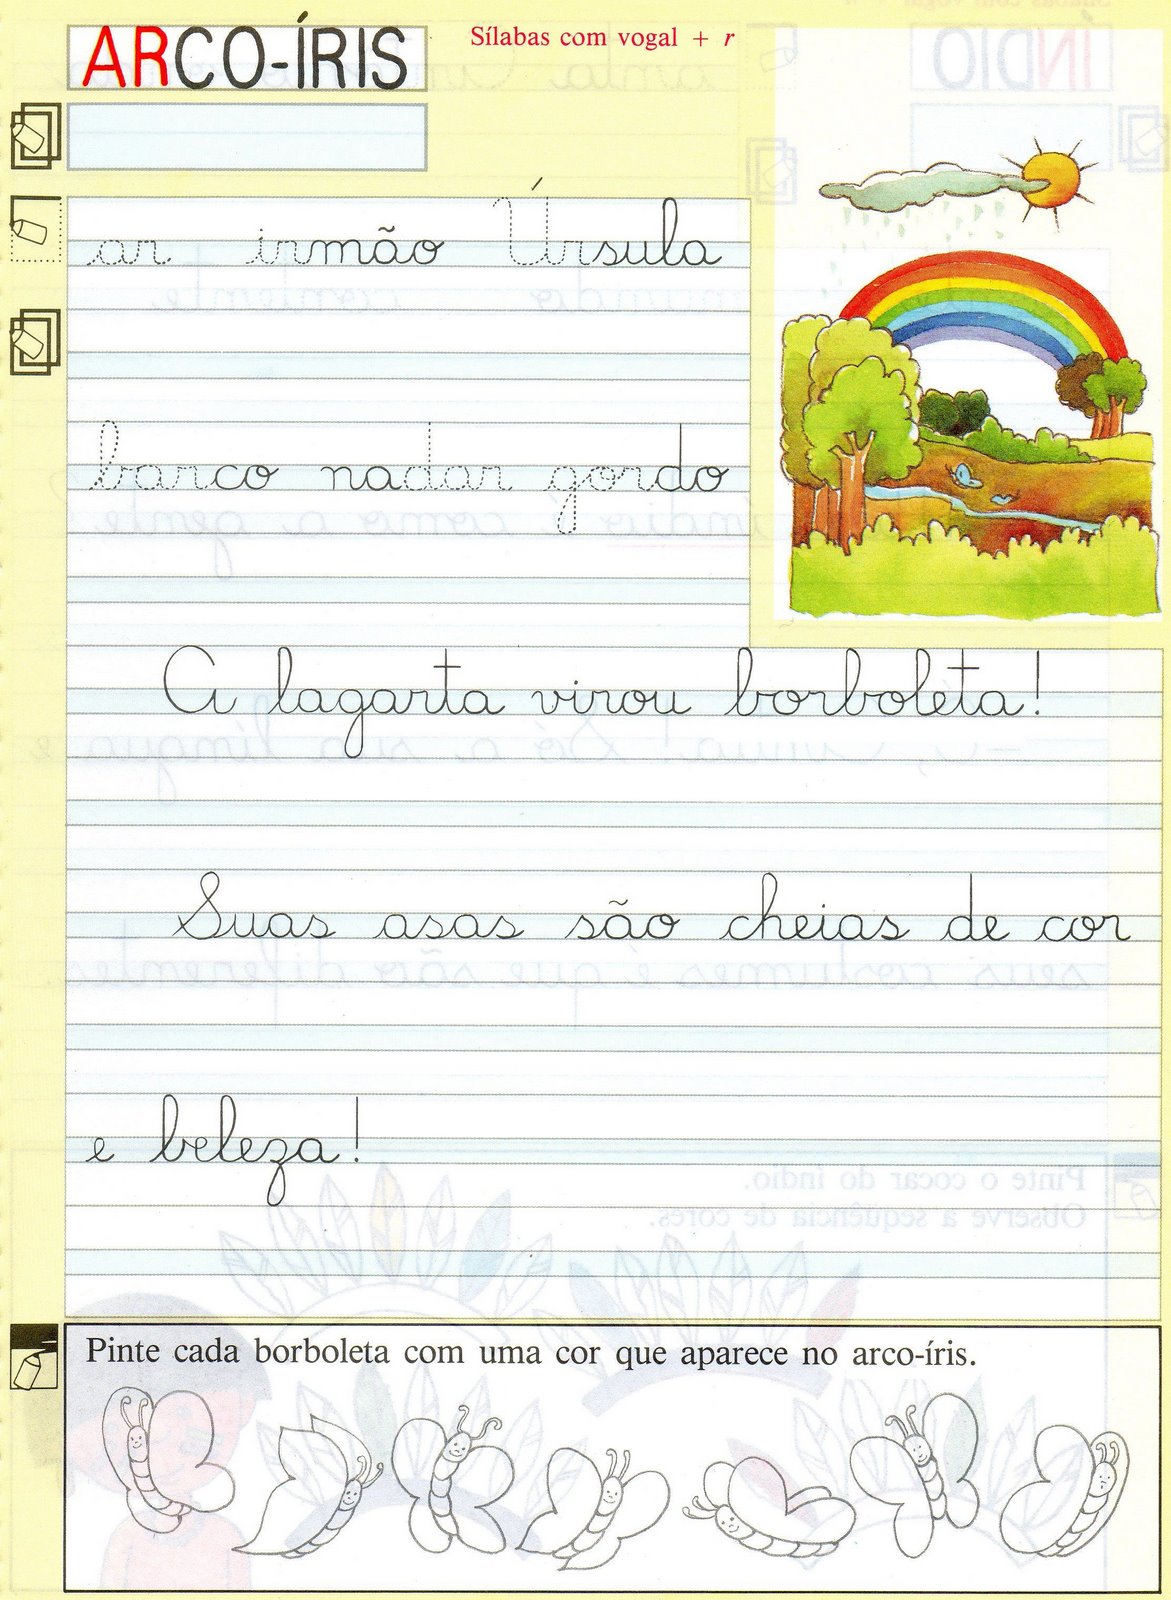 ARCO-ÍRIS
Sílabas com vogal + r
ar irmão Úrsula
barco nadar gordo
A lagarta virou borboleta!
Suas asas são cheias de cor
e beleza!
Pinte cada borboleta com uma cor que aparece no arco-íris.